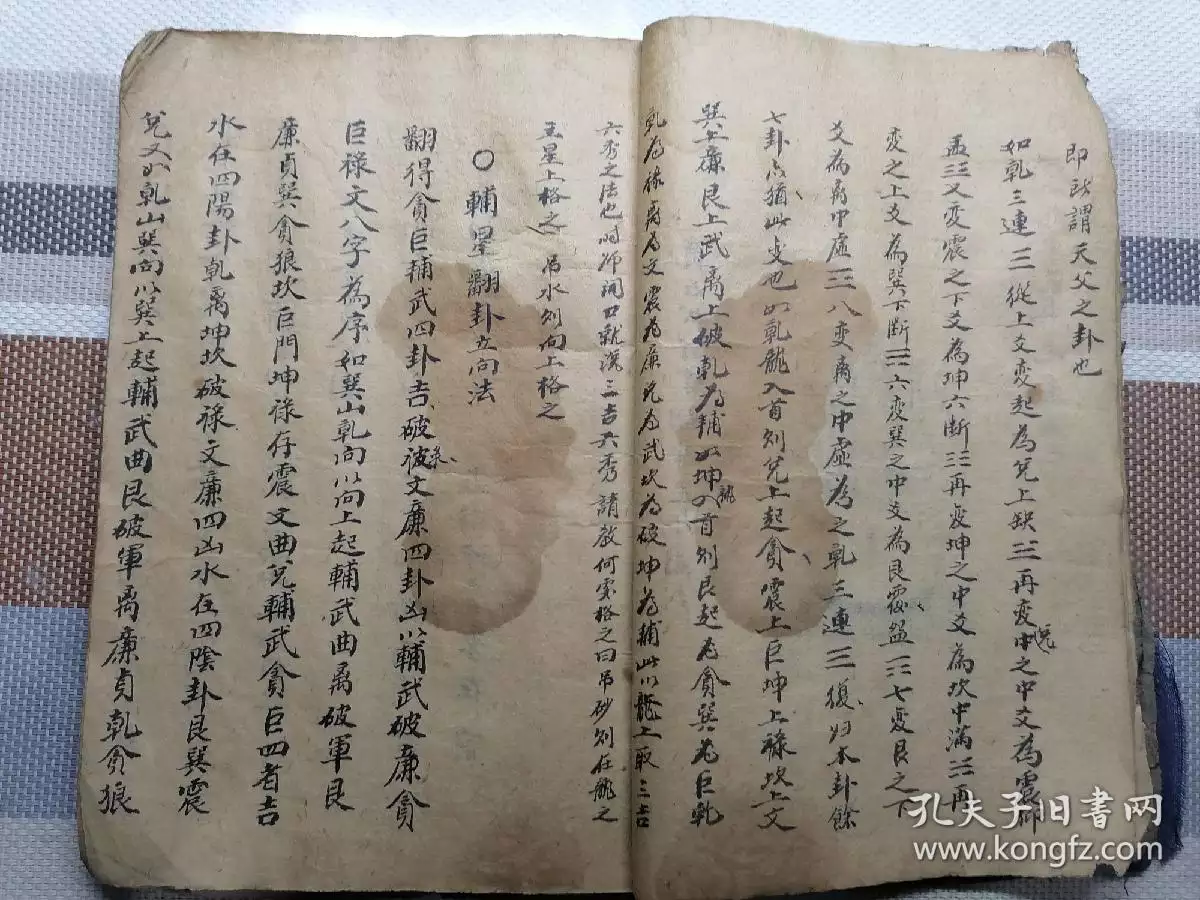 即所謂天父之卦也
如乾三連☰從上爻變起為兌上缺☱再变中之中爻為震仰
兑
盂☳又变震之下爻為坤六断☷再变坤之中爻為坎中滿☵再
变之上爻為巽下断☴六变巽之中爻為艮覆盌☶七变艮之下
爻為离中虛☲八变离之中虛為之乾三連☰復归本卦餘
七卦亦猶此变也如乾龍入首则兌上起貪震上巨坤上祿坎上文
巽上廉艮上武离上破乾為輔如坤入首则艮起為貪巽為巨乾
龍
乾為祿离為文震為廉兌為武坎為破坤為輔此以龍上取三吉
六秀之法也時师開口就説三吉六秀請教何處格之曰吊砂则在龍之
五星上格之吊水则向上格之
〇輔星翻卦立向法
翻得貪巨輔武四卦吉破彼文廉四卦凶以輔武破廉貪
祿
巨祿文八字為序如巽山乾向以向上起輔武曲离破軍艮
廉貞巽貪狼坎巨門坤祿存震文曲兌輔武貪巨四者吉
水在四陽卦乾离坤坎破祿文廉四凶水在四陰卦艮巽震
兌又如乾山巽向以巽上起輔武曲艮破軍离廉貞乾貪狼
孔夫子旧书网
www.kongfz.com